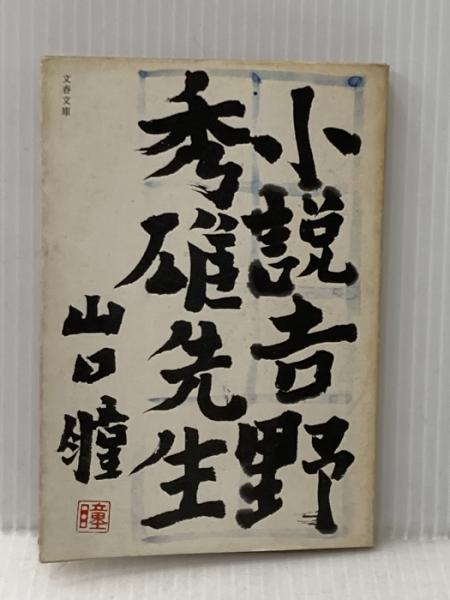 文春文庫
小説吉野
秀雄先生
山口瞳